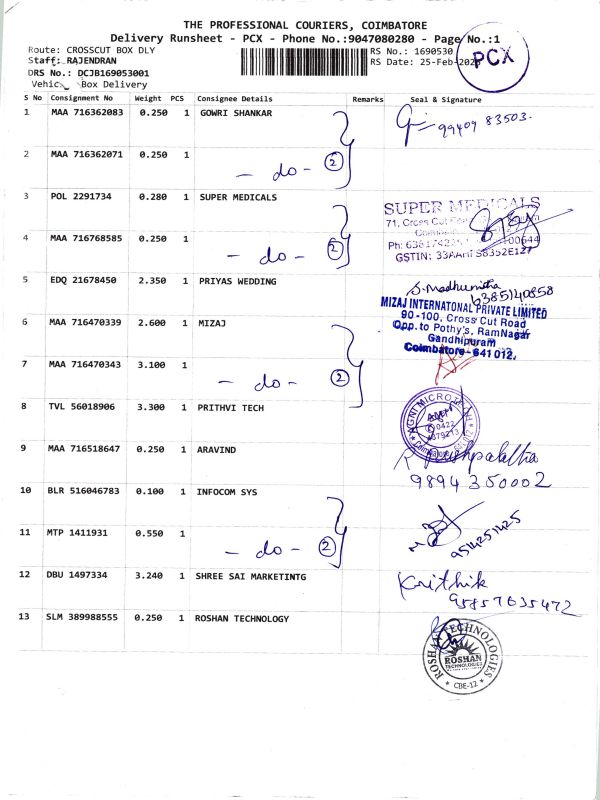 THE PROFESSIONAL COURIERS, COIMBATORE
Delivery Runsheet - PCX - Phone No.:9047080280 - Page No.:1
Route: CROSSCUT BOX DLY RS No.: 1690530
Staff: RAJENDRAN RS Date: 25-Feb-202
PCX
DRS No.: DCJB169053001
Vehic Box Delivery
S No Consignment No Weight PCS Consignee Details Remarks Seal & Signature
1 MAA 716362083 0.250 1 GOWRI SHANKAR
99409 83503.
2 MAA 716362071 0.250 1
- do - 2
3 POL 2291734 0.280 1 SUPER MEDICALS
SUPER MEDICALS
71, Cross Cut
4 MAA 716768585 0.250 1
- do - 2
Ph: 00644
GSTIN:
5 EDQ 21678450 2.350 1 PRIYAS WEDDING
S. Madhumitha
6385140858
6 MAA 716470339 2.600 1 MIZAJ
MIZAJ INTERNATONAL PRIVATE LIMITED
90-100, Cross Cut Road
Opp. to Pothy's, RamNagar
Gandhipuram
Coimbatore - 641 012.
7 MAA 716470343 3.100 1
- do - 2
8 TVL 56018906 3.300 1 PRITHVI TECH
AGNI MICROTECH
0422
Coimbatore
9 MAA 716518647 0.250 1 ARAVIND
R Pushpalatha
9894350002
10 BLR 516046783 0.100 1 INFOCOM SYS
11 MTP 1411931 0.550 1
- do - 2
9514251425
12 DBU 1497334 3.240 1 SHREE SAI MARKETINTG
Krithik
13 SLM 389988555 0.250 1 ROSHAN TECHNOLOGY
ROSHAN TECHNOLOGIES
ROSHAN
TECHNOLOGIES
CBE-12